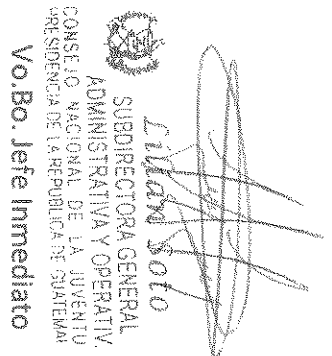 Lilian Soto
SUBDIRECTORA GENERAL
ADMINISTRATIVA Y OPERATIV
CONSEJO NACIONAL DE LA JUVENTU
PRESIDENCIA DE LA REPUBLICA DE GUATEMA
Vo.Bo. Jefe Inmediato